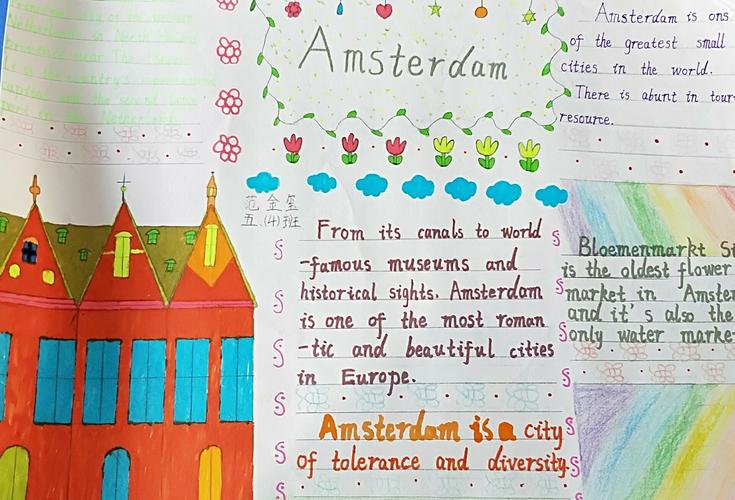 Amsterdam
Netherlands in North
Amsterdam is ons
of the greatest small
cities in the world.
There is abunt in tour
resource.
范金玺
五.(4)班
From its canals to world
-famous museums and
historical sights. Amsterdam
is one of the most roman
-tic and beautiful cities
in Europe.
Amsterdam is a city
of tolerance and diversity.
Bloemenmarkt St
is the oldest flower
market in Amster
and it's also the
only water marke